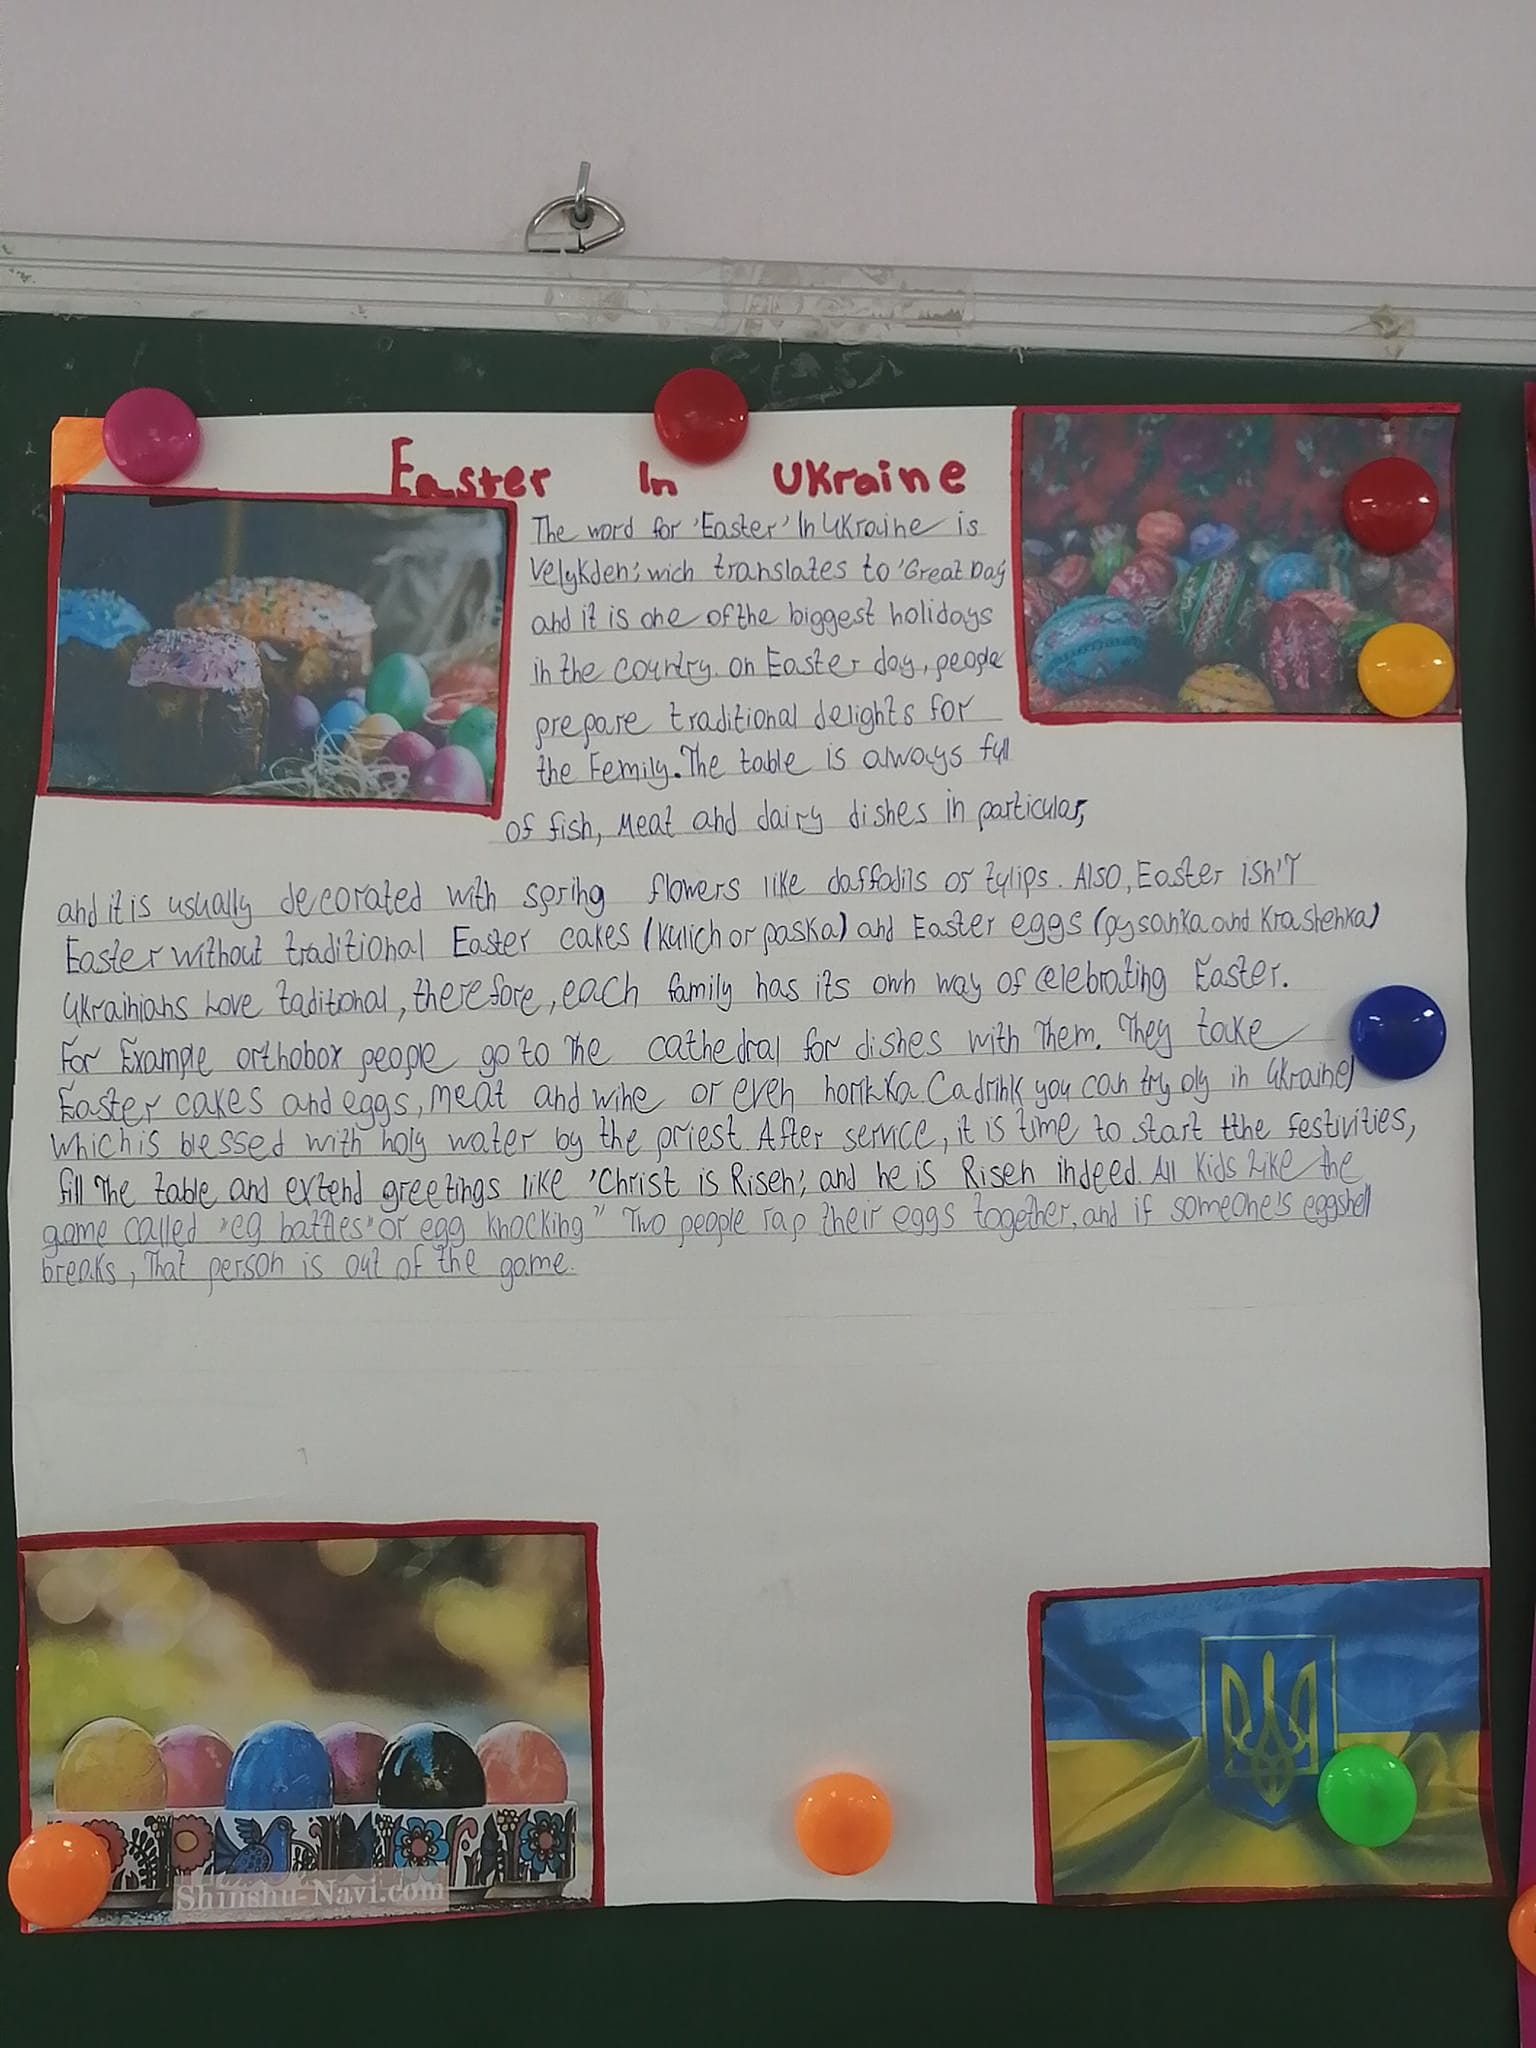 Easter In Ukraine
The word for 'Easter' In Ukraine is
Velykden; wich translates to 'Great Day
and it is one of the biggest holidays
in the country. on Easter day, people
prepare traditional delights for
the Femily. The table is always full
of fish, Meat and dairy dishes in particular,
and it is usually decorated with spring flowers like daffodils or tylips. Also, Easter isn't
Easter without traditional Easter cakes (Kulich or paska) and Easter eggs (pysanka and Krashenka)
Ukrainians Love taditional, therefore, each family has its own way of celebrating Easter.
For Example orthobox people go to The cathedral for dishes with Them. They take
Easter cakes and eggs, meat and wine or even horikka Cadrink you can try oly in Ukraine)
Which is blessed with holy water by the priest. After service, it is time to start tthe festivities,
fill The table and extend greetings like 'Christ is Risen', and he is Risen indeed. All Kids Like the
game called "eg battles" or egg knocking" Two people rap their eggs together, and if someone's eggshell
breaks, That person is out of the game.
Shinshu-Navi.com